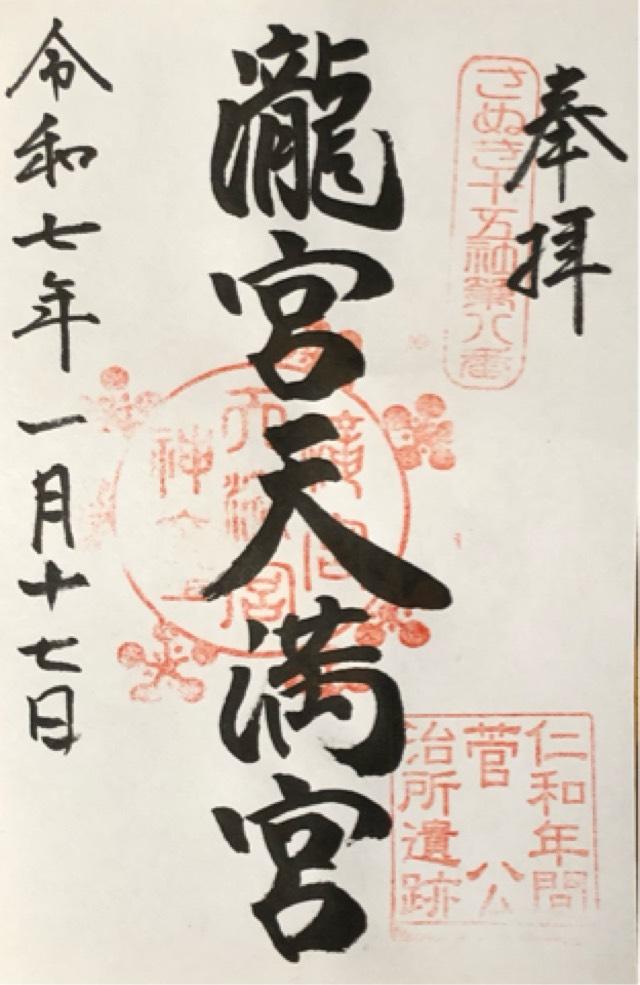 奉拝
さぬき十五社第八番
仁和年間
菅公
治所遺跡
瀧宮天満宮
瀧宮
天満宮
神
令和七年一月十七日